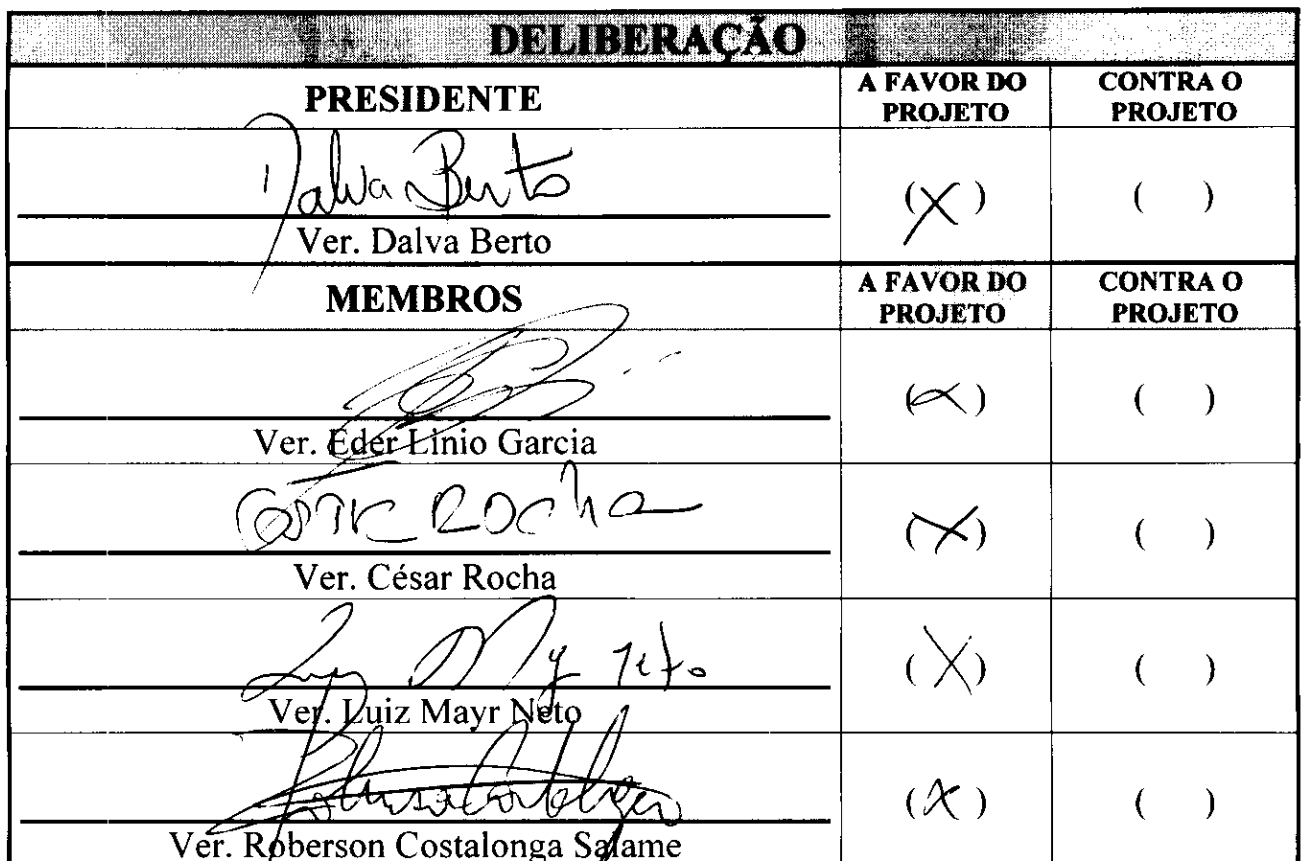 DELIBERAÇÃO
PRESIDENTE
A FAVOR DO PROJETO
CONTRA O PROJETO
Dalva Berto
(X)
( )
Ver. Dalva Berto
MEMBROS
A FAVOR DO PROJETO
CONTRA O PROJETO
(X)
( )
Ver. Eder Linio Garcia
Rocha
(X)
( )
Ver. César Rocha
(X)
( )
Ver. Luiz Mayr Neto
(X)
( )
Ver. Roberson Costalonga Salame